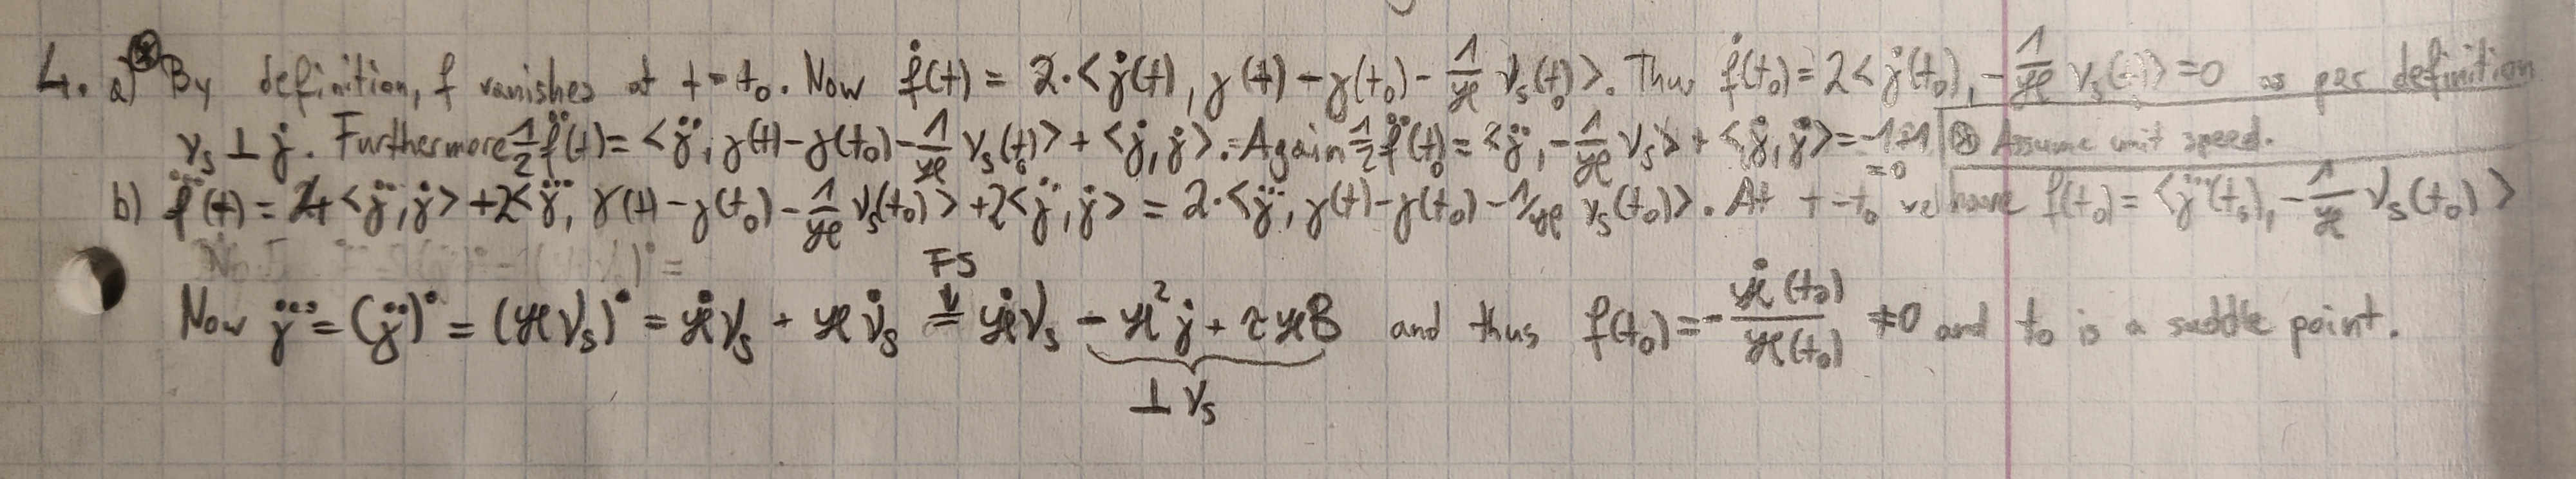 4. a) ⊛ By definition, f vanishes at t=t₀. Now ḟ(t) = 2·<γ̇(t), γ(t) - γ(t₀) - 1/ϰ ν_s(t₀)>. Thus ḟ(t₀) = 2<γ̇(t₀), -1/ϰ ν_s(t₀)> = 0 as per definition
ν_s ⊥ γ̇. Furthermore 1/2 f̈(t) = <γ̈, γ(t) - γ(t₀) - 1/ϰ ν_s(t₀)> + <γ̇, γ̇>. Again 1/2 f̈(t₀) = <γ̈, -1/ϰ ν_s> + <γ̇, γ̇> = -1+1 = 0 ⊛ Assume unit speed.
b) f⃛(t) = 4<γ̈, γ̇> + 2<γ⃛, γ(t) - γ(t₀) - 1/ϰ ν_s(t₀)> + 2<γ̈, γ̇> = 2·<γ⃛, γ(t) - γ(t₀) - 1/ϰ ν_s(t₀)>. At t=t₀ we have f(t₀) = <γ⃛(t₀), -1/ϰ ν_s(t₀)>
FS
Now γ⃛ = (γ̈)˙ = (ϰν_s)˙ = ϰ̇ν_s + ϰν̇_s = ϰ̇ν_s - ϰ²γ̇ + τϰB and thus f(t₀) = - ϰ̇(t₀)/ϰ(t₀) ≠ 0 and t₀ is a saddle point.
⊥ ν_s